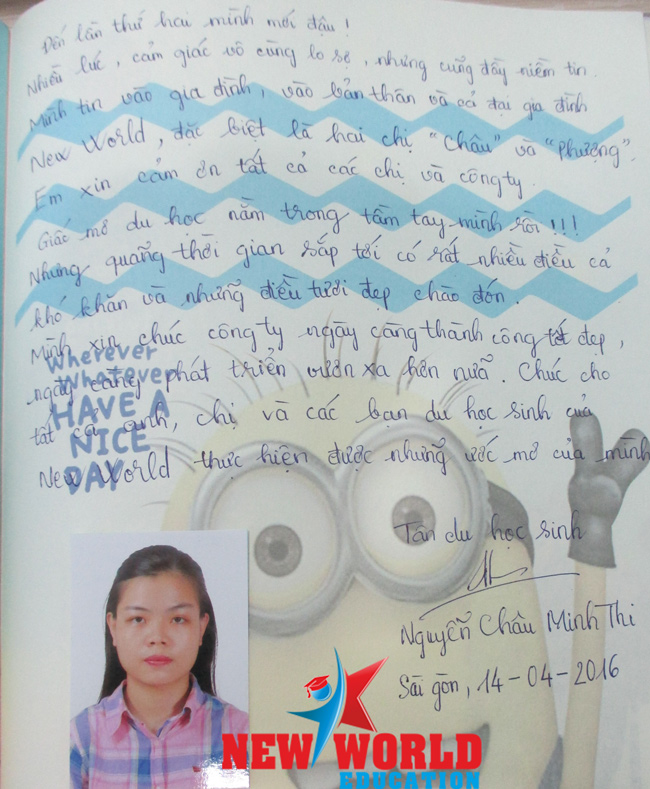 Đến lần thứ hai mình mới đậu !
Nhiều lúc, cảm giác vô cùng lo sợ, nhưng cũng đầy niềm tin.
Mình tin vào gia đình, vào bản thân và cả đại gia đình
New World, đặc biệt là hai chị "Châu" và "Phượng".
Em xin cảm ơn tất cả các chị và công ty.
Giấc mơ du học nằm trong tầm tay mình rồi !!!
Nhưng quãng thời gian sắp tới có rất nhiều điều cả
khó khăn và những điều tươi đẹp chào đón.
Mình xin chúc công ty ngày càng thành công tốt đẹp,
ngày càng phát triển vươn xa hơn nữa. Chúc cho
tất cả anh, chị và các bạn du học sinh của
New World thực hiện được những ước mơ của mình
Wherever
Whatever
HAVE A
NICE
DAY
Tân du học sinh
Nguyễn Châu Minh Thi
Sài gòn, 14-04-2016
NEW WORLD
EDUCATION